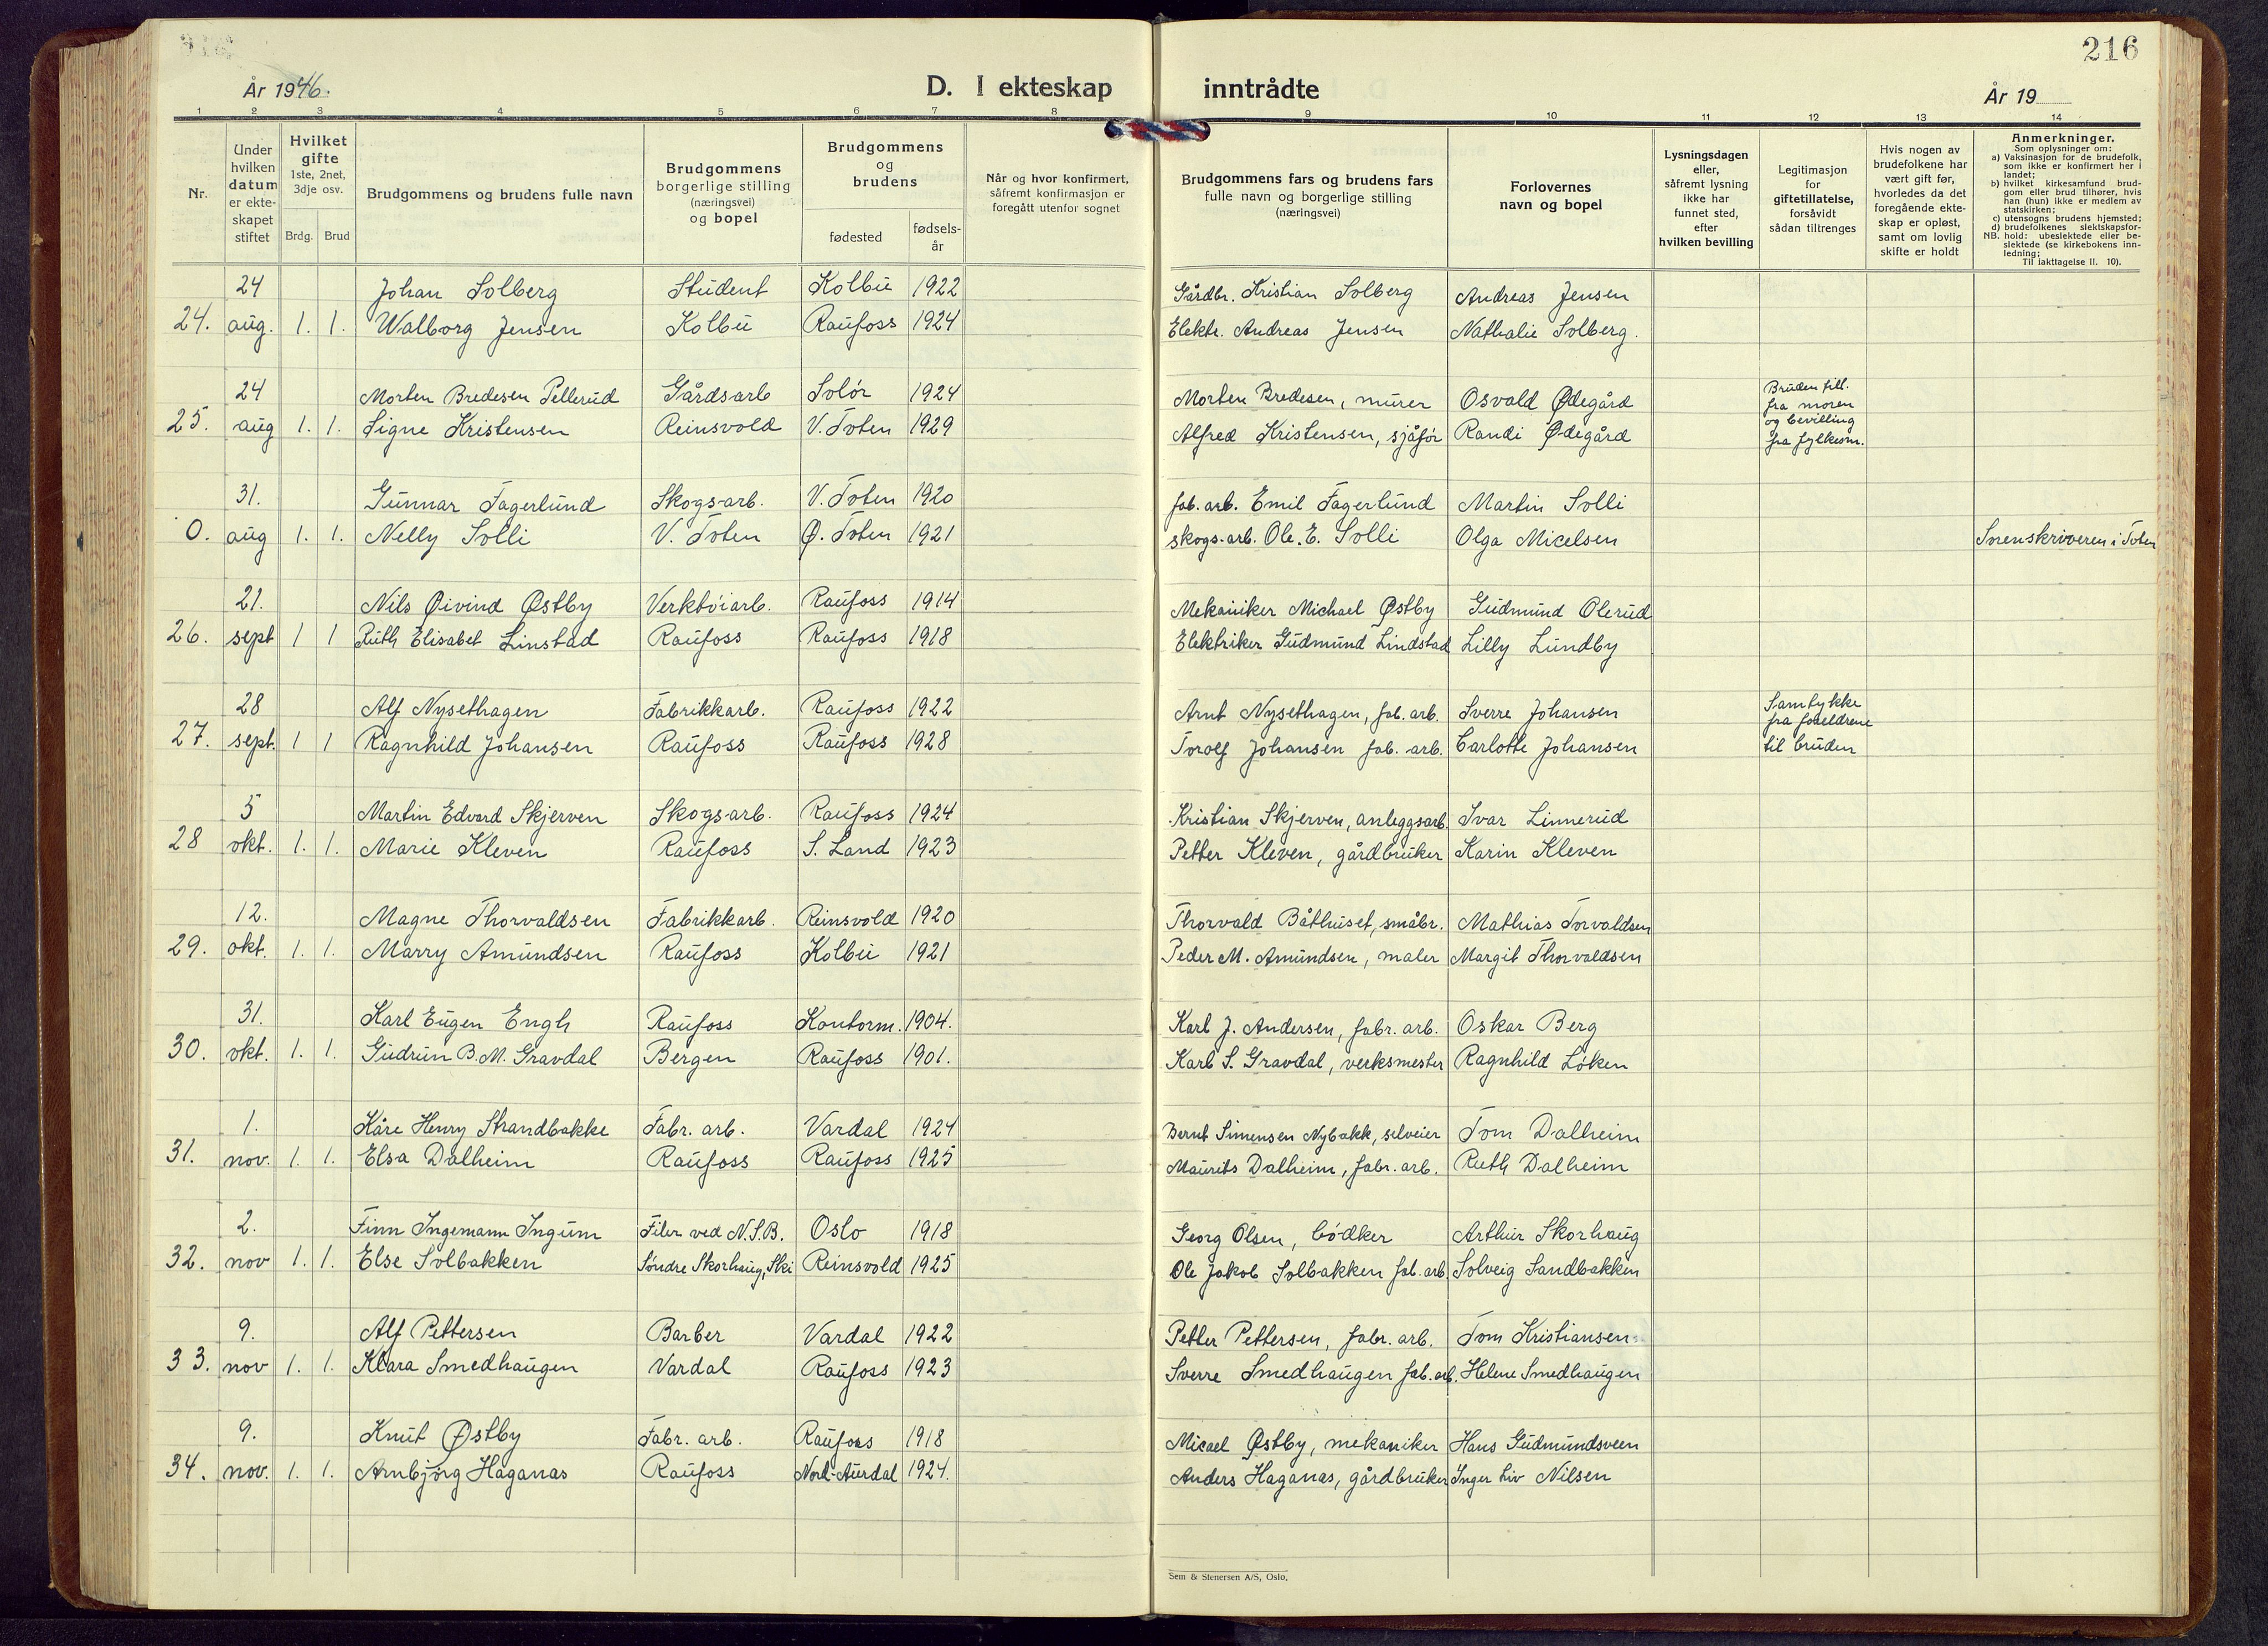 216
År 1946.
D. I ekteskap inntrådte
År 19
1 2 3 4 5 6 7 8 9 10 11 12 13 14
Nr.
Under hvilken datum er ekteskapet stiftet
Hvilket gifte 1ste, 2net, 3dje osv.
Brdg. Brud
Brudgommens og brudens fulle navn
Brudgommens borgerlige stilling (næringsvei) og bopel
Brudgommens og brudens
fødested
fødselsår
Når og hvor konfirmert, såfremt konfirmasjon er foregått utenfor sognet
Brudgommens fars og brudens fars fulle navn og borgerlige stilling (næringsvei)
Forlovernes navn og bopel
Lysningsdagen eller, såfremt lysning ikke har funnet sted, efter hvilken bevilling
Legitimasjon for giftetillatelse, forsåvidt sådan tiltrenges
Hvis nogen av brudefolkene har vært gift før, hvorledes da det foregående ekteskap er opløst, samt om lovlig skifte er holdt
Anmerkninger.
Som oplysninger om:
a) Vaksinasjon for de brudefolk, som ikke er konfirmert her i landet;
b) hvilket kirkesamfund brudgom eller brud tilhører, hvis han (hun) ikke er medlem av statskirken;
c) utensogns brudens hjemsted;
d) brudefolkenes slektskapsforhold: ubeslektede eller beslektede (se kirkebokens innledning;
NB. Til iakttagelse II. 10).
24 Johan Solberg Student Kolbu 1922 Gårdbr. Kristian Solberg Andreas Jensen
24. aug. 1. 1. Walborg Jensen Kolbu Raufoss 1924 Elektr. Andreas Jensen Nathalie Solberg.
24 Morten Bredesen Pellerud Gårdsarb Solör 1924 Morten Bredesen, murer Osvald Ødegård Bruden till. fra moren
25. aug 1. 1. Signe Kristensen Reinsvold V. Toten 1929 Alfred Kristensen, sjåför Randi Ødegård og bevilling fra fylkesm.
31. Gunnar Fagerlund Skogs-arb. V. Toten 1920 fab. arb. Emil Fagerlund Martin Solli
0. aug 1. 1. Nelly Solli V. Toten Ø. Toten 1921 skogs-arb. Ole. E. Solli Olga Micelsen Sorenskriveren i Toten
21. Nils Øivind Østby Verktöiarb. Raufoss 1914 Mekaniker Michael Østby Gudmund Olerud
26. sept 1 1 Ruth Elisabet Linstad Raufoss Raufoss 1918 Elektriker Gudmund Lindstad Lilly Lundby
28 Alf Nysethagen Fabrikkarb. Raufoss 1922 Arnt Nysethagen, fab. arb. Sverre Johansen Samtykke fra foreldrene
27. sept. 1 1 Ragnhild Johansen Raufoss Raufoss 1928 Torolf Johansen fab. arb. Carlotte Johansen til bruden
5 Martin Edvard Skjerven Skogsarb. Raufoss 1924 Kristian Skjerven, anleggsarb. Ivar Linnerud
28 okt. 1. 1. Marie Kleven Raufoss S. Land 1923 Petter Kleven, gårdbruker Karin Kleven
12. Magne Thorvaldsen Fabrikkarb. Reinsvold 1920 Thorvald Båthuset, småbr. Mathias Torvaldsen
29. okt. 1. 1. Marry Amundsen Raufoss Kolbu 1921 Peder M. Amundsen, maler Margit Thorvaldsen
31. Karl Eugen Engh Raufoss Kontorm. 1904. Karl J. Andersen, fabr. arb. Oskar Berg
30. okt. 1. 1. Gudrun B. M. Gravdal Bergen Raufoss 1901. Karl S. Gravdal, verksmester Ragnhild Löken
1. Kåre Henry Strandbakke Fabr. arb. Vardal 1924 Bernt Simensen Nybakk, selveier Tom Dalheim
31. nov. 1. 1. Elsa Dalheim Raufoss Raufoss 1925 Maurits Dalheim, fabr. arb. Ruth Dalheim
2. Finn Ingemann Ingum Filer ved N.S.B. Oslo 1918 Georg Olsen, bödker Arthur Skorhaug
32. nov 1. 1. Else Solbakken Söndre Skorhaug, Ski Reinsvold 1925 Ole Jakob Solbakken fab. arb. Solveig Sandbakken
9. Alf Pettersen Barber Vardal 1922 Petter Pettersen, fabr. arb. Tom Kristiansen
33. nov 1. 1. Klara Smedhaugen Vardal Raufoss 1923 Sverre Smedhaugen fab. arb. Helene Smedhaugen
9. Knut Østby Fabr. arb. Raufoss 1918 Micael Østby, mekaniker Hans Gudmundsveen
34. nov. 1. 1. Arnbjörg Haganas Raufoss Nord-Aurdal 1924. Anders Haganas, gårdbruker Inger Liv Nilsen
Sem & Stenersen A/S, Oslo.